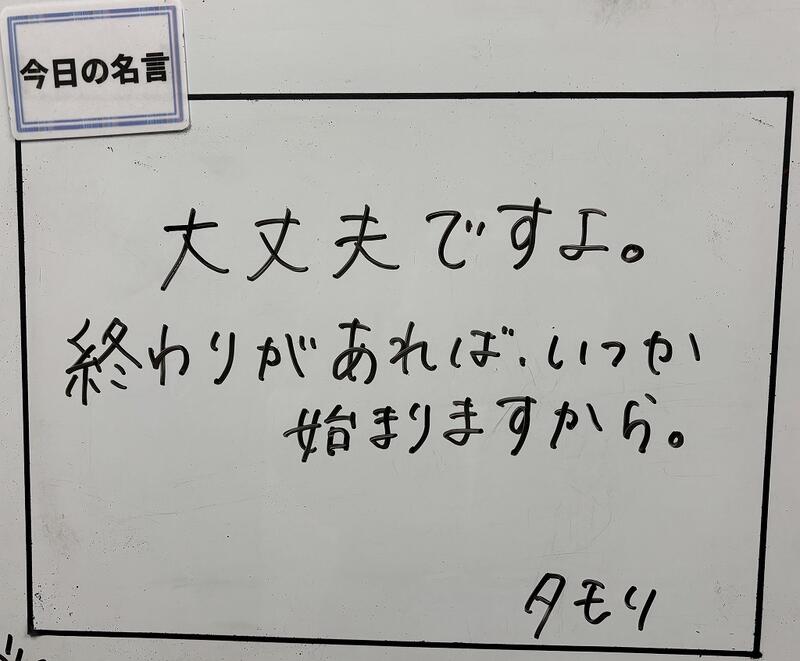 今日の名言
大丈夫ですよ。
終わりがあれば、いつか
始まりますから。
タモリ